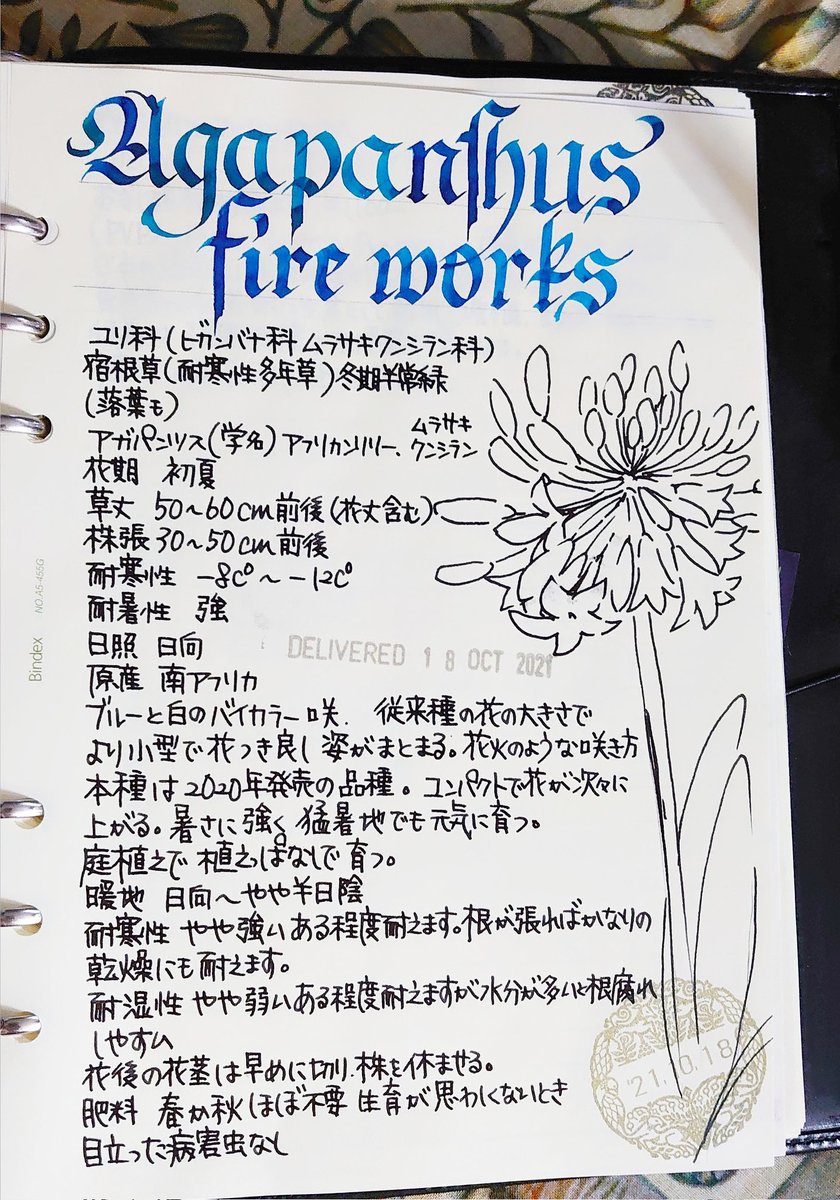 Agapanshus
fire works
ユリ科(ヒガンバナ科 ムラサキクンシラン科)
宿根草(耐寒性多年草)冬期半常緑
(落葉モ)
アガパンツス(学名) アフリカンリリー、ムラサキクンシラン
花期 初夏
草丈 50~60cm前後(花丈含む)
株張 30~50cm前後
耐寒性 -8C°~-12C°
耐暑性 強
日照 日向
DELIVERED 18 OCT 2021
原産 南アフリカ
ブルーと白のバイカラー咲. 従来種の花の大きさで
より小型で花つき良し姿がまとまる。花火のような咲き方
本種は2020年発売の品種。コンパクトで花が次々に
上がる。暑さに強く猛暑地でも元気に育つ。
庭植えで植えっぱなしで育つ。
暖地 日向~やや半日陰
耐寒性 やや強い ある程度耐えます。根が張ればかなりの
乾燥にも耐えます。
耐湿性 やや弱い ある程度耐えますが水分が多いと根腐れ
しやすい
花後の花茎は早めに切り、株を休ませる。
肥料 春か秋 ほぼ不要 生育が思わしくないとき
目立った病害虫なし
'21.10.18
Bindex NO.A5-455G